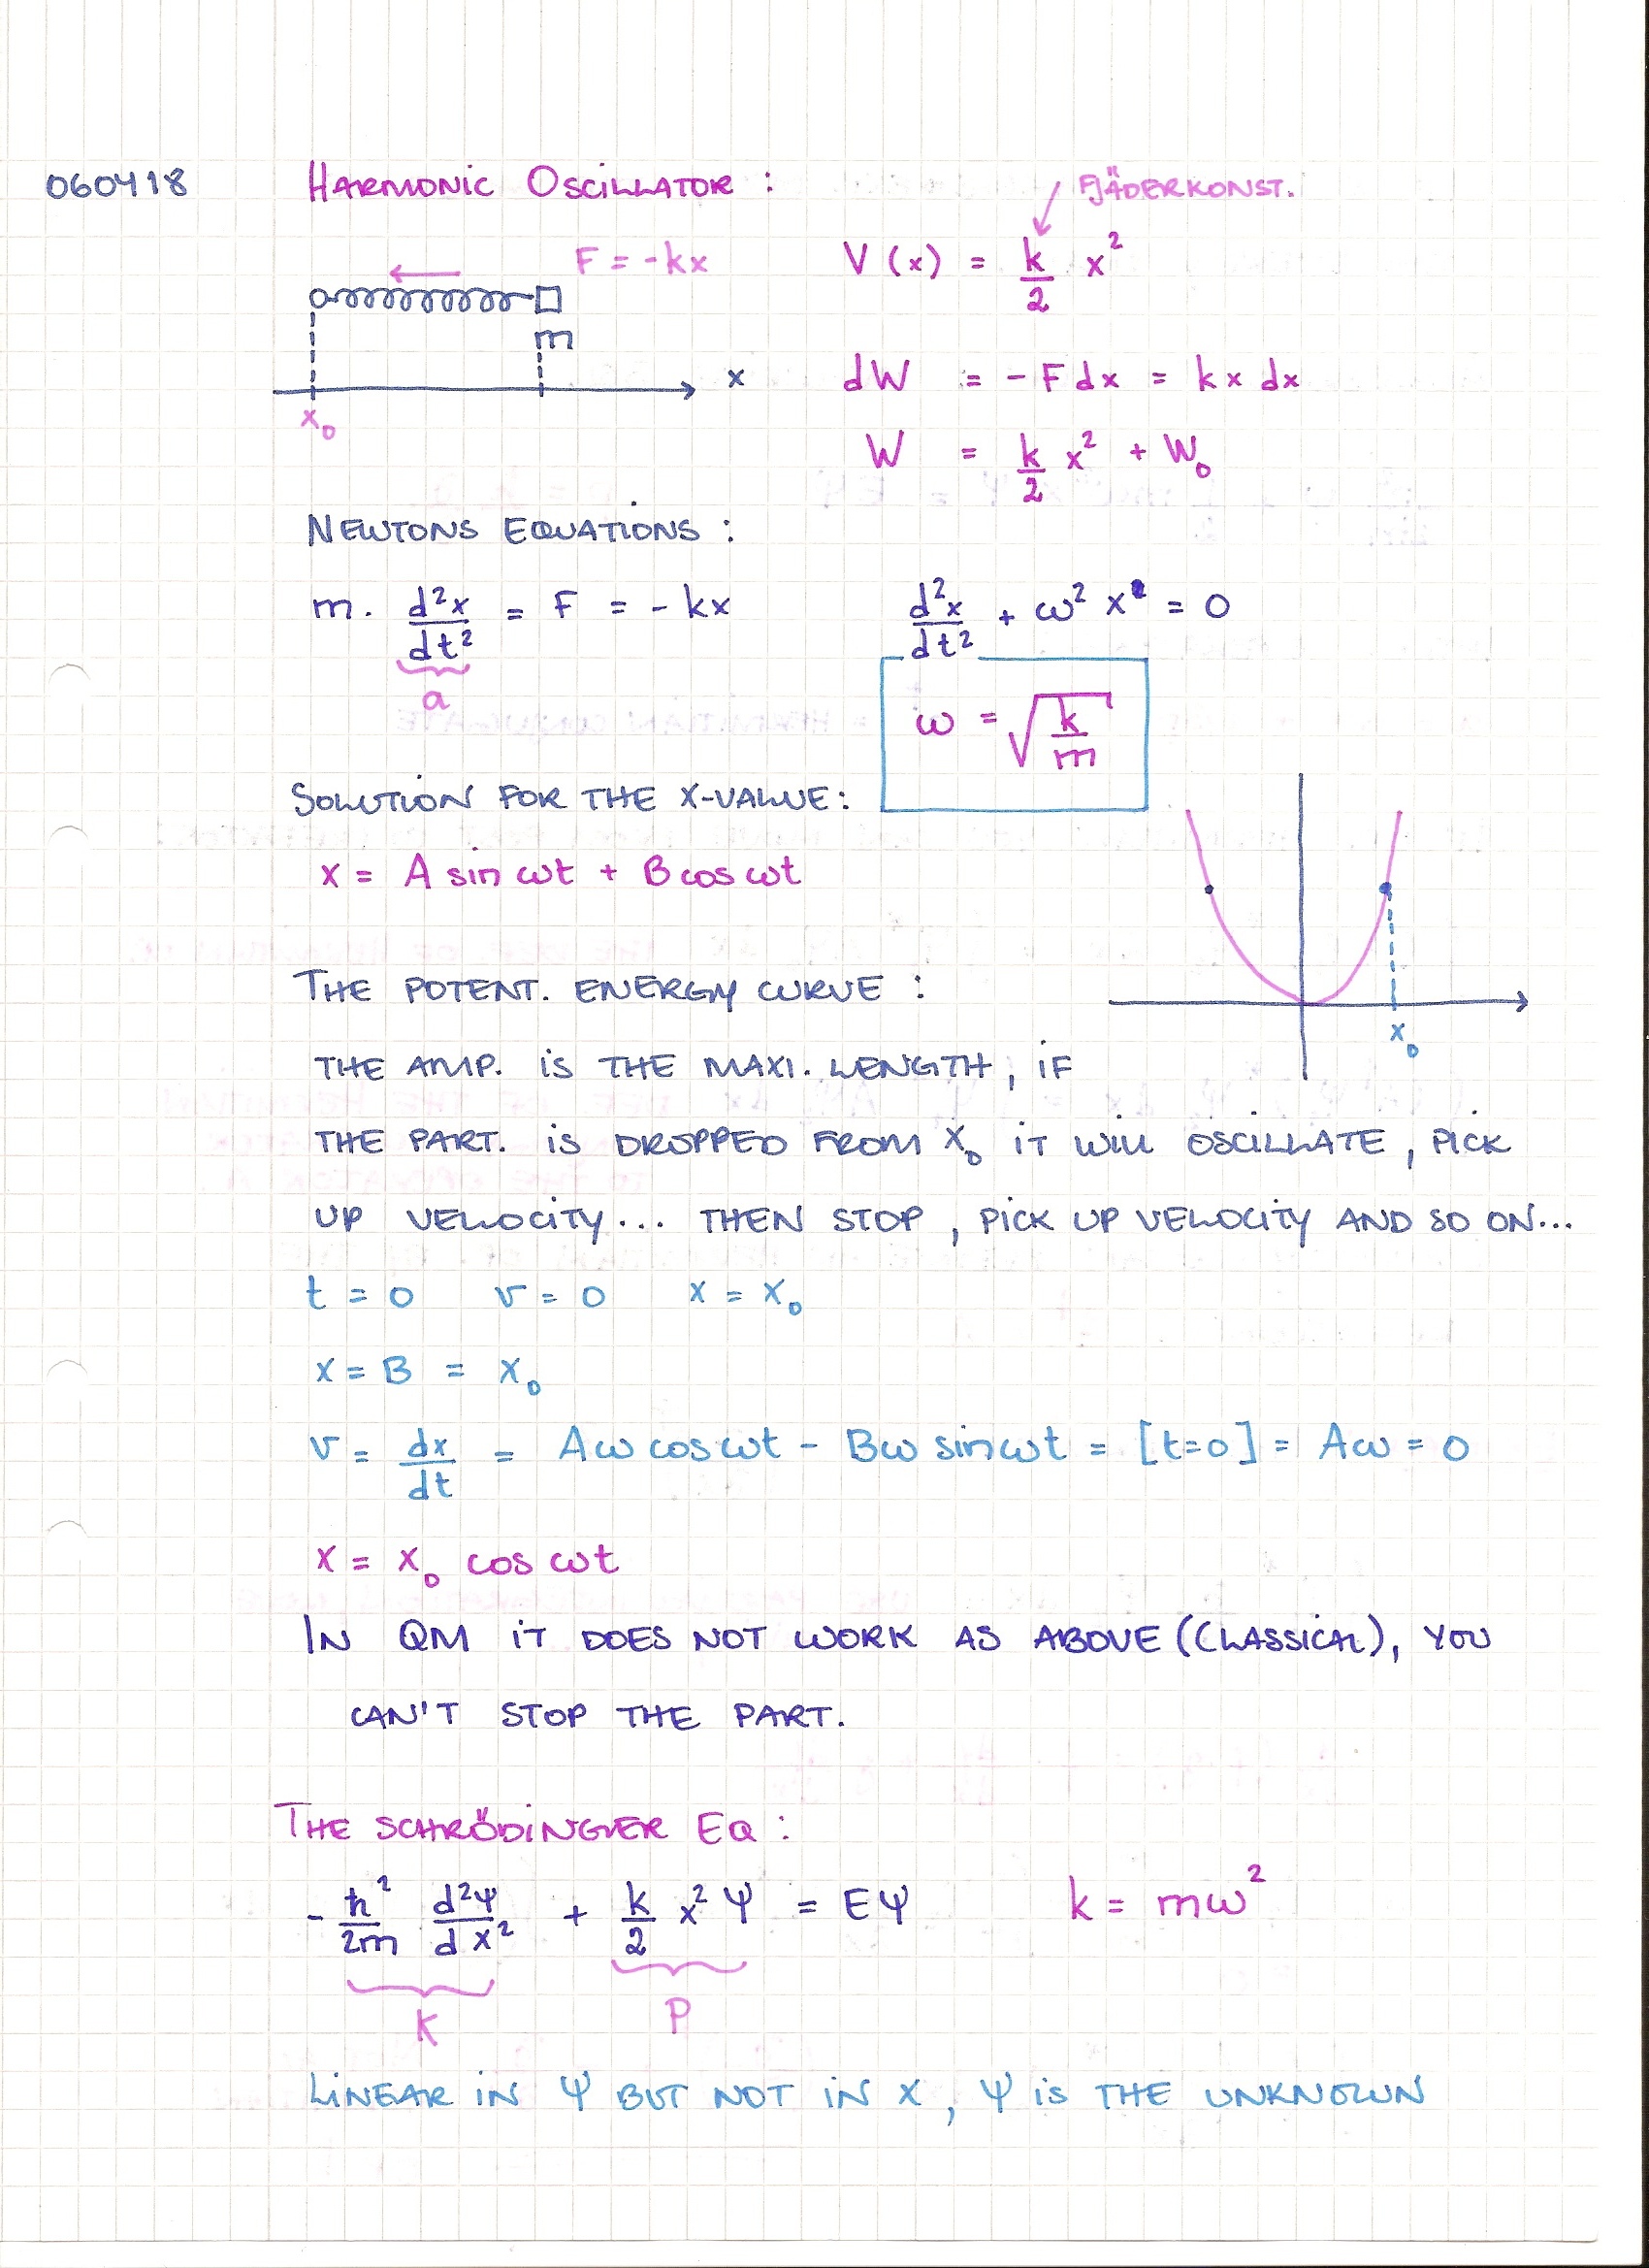 060418 HARMONIC OSCILLATOR :
FJÄDERKONST.
F = -kx
V(x) = k/2 x²
m
x
x₀
dW = -Fdx = kx dx
W = k/2 x² + W₀
NEWTONS EQUATIONS :
m. d²x/dt² = F = -kx
a
d²x/dt² + ω² x = 0
ω = √(k/m)
SOLUTION FOR THE X-VALUE:
x = A sin ωt + B cos ωt
THE POTENT. ENERGY CURVE :
x₀
THE AMP. IS THE MAXI. LENGTH, IF
THE PART. IS DROPPED FROM X₀ IT WILL OSCILLATE, PICK
UP VELOCITY... THEN STOP, PICK UP VELOCITY AND SO ON...
t = 0 v = 0 x = x₀
x = B = x₀
v = dx/dt = Aω cos ωt - Bω sin ωt = [t=0] = Aω = 0
x = x₀ cos ωt
IN QM IT DOES NOT WORK AS ABOVE (CLASSICAL), YOU
CAN'T STOP THE PART.
THE SCHRÖDINGER EQ :
-ħ²/2m d²ψ/dx² + k/2 x² ψ = Eψ k = mω²
K P
LINEAR IN ψ BUT NOT IN X, ψ IS THE UNKNOWN